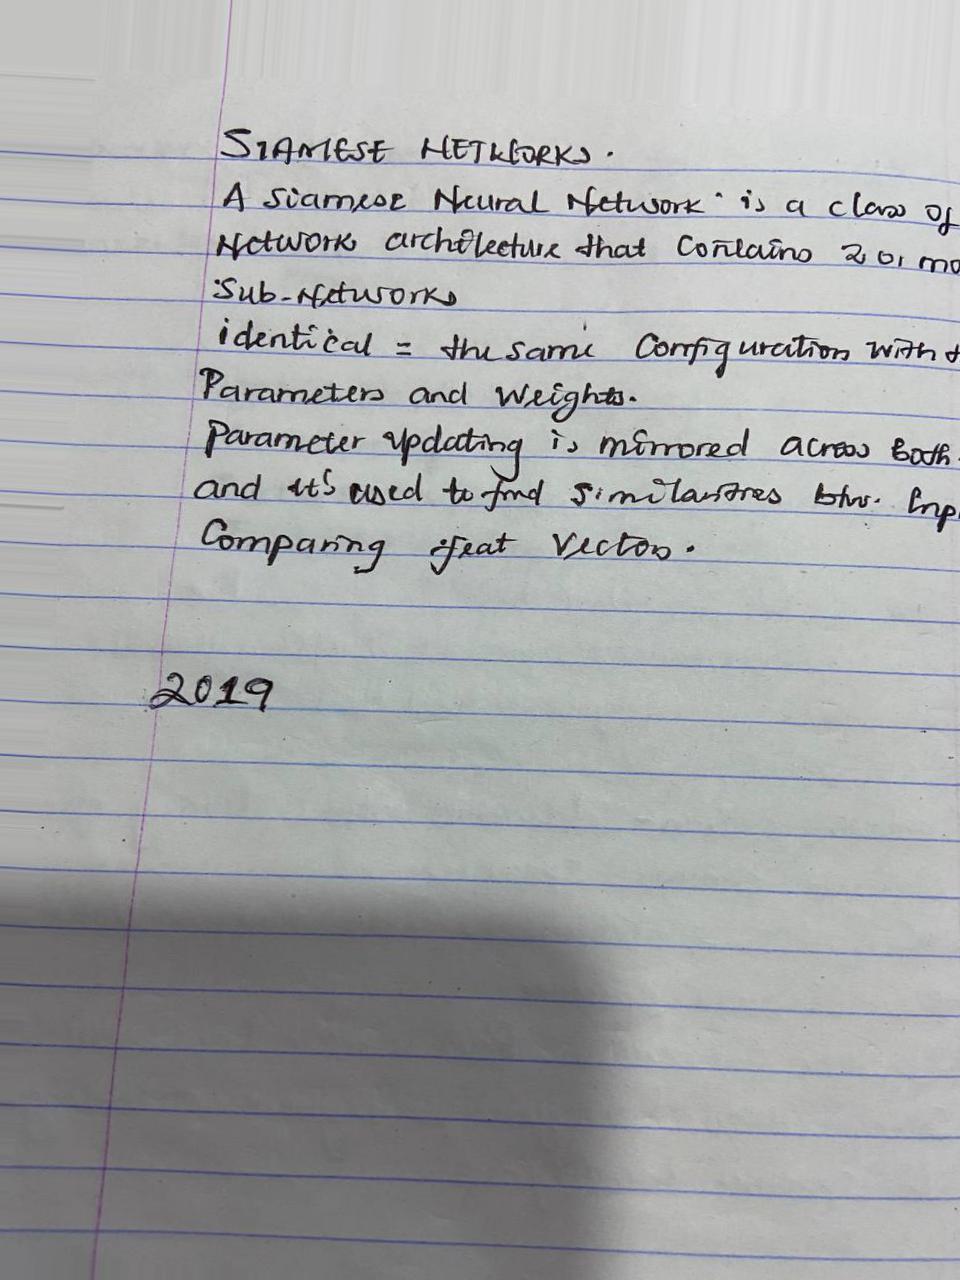 SIAMESE NETWORKS.
A Siamese Neural Network is a class of
Network architecture that Contains 2 or mo
Sub-Networks
identical = the same Configuration with t
Parameters and Weights.
Parameter updating is mirrored across both
and it's used to find similarities btw. Inp
Comparing feat Vectors.
2019